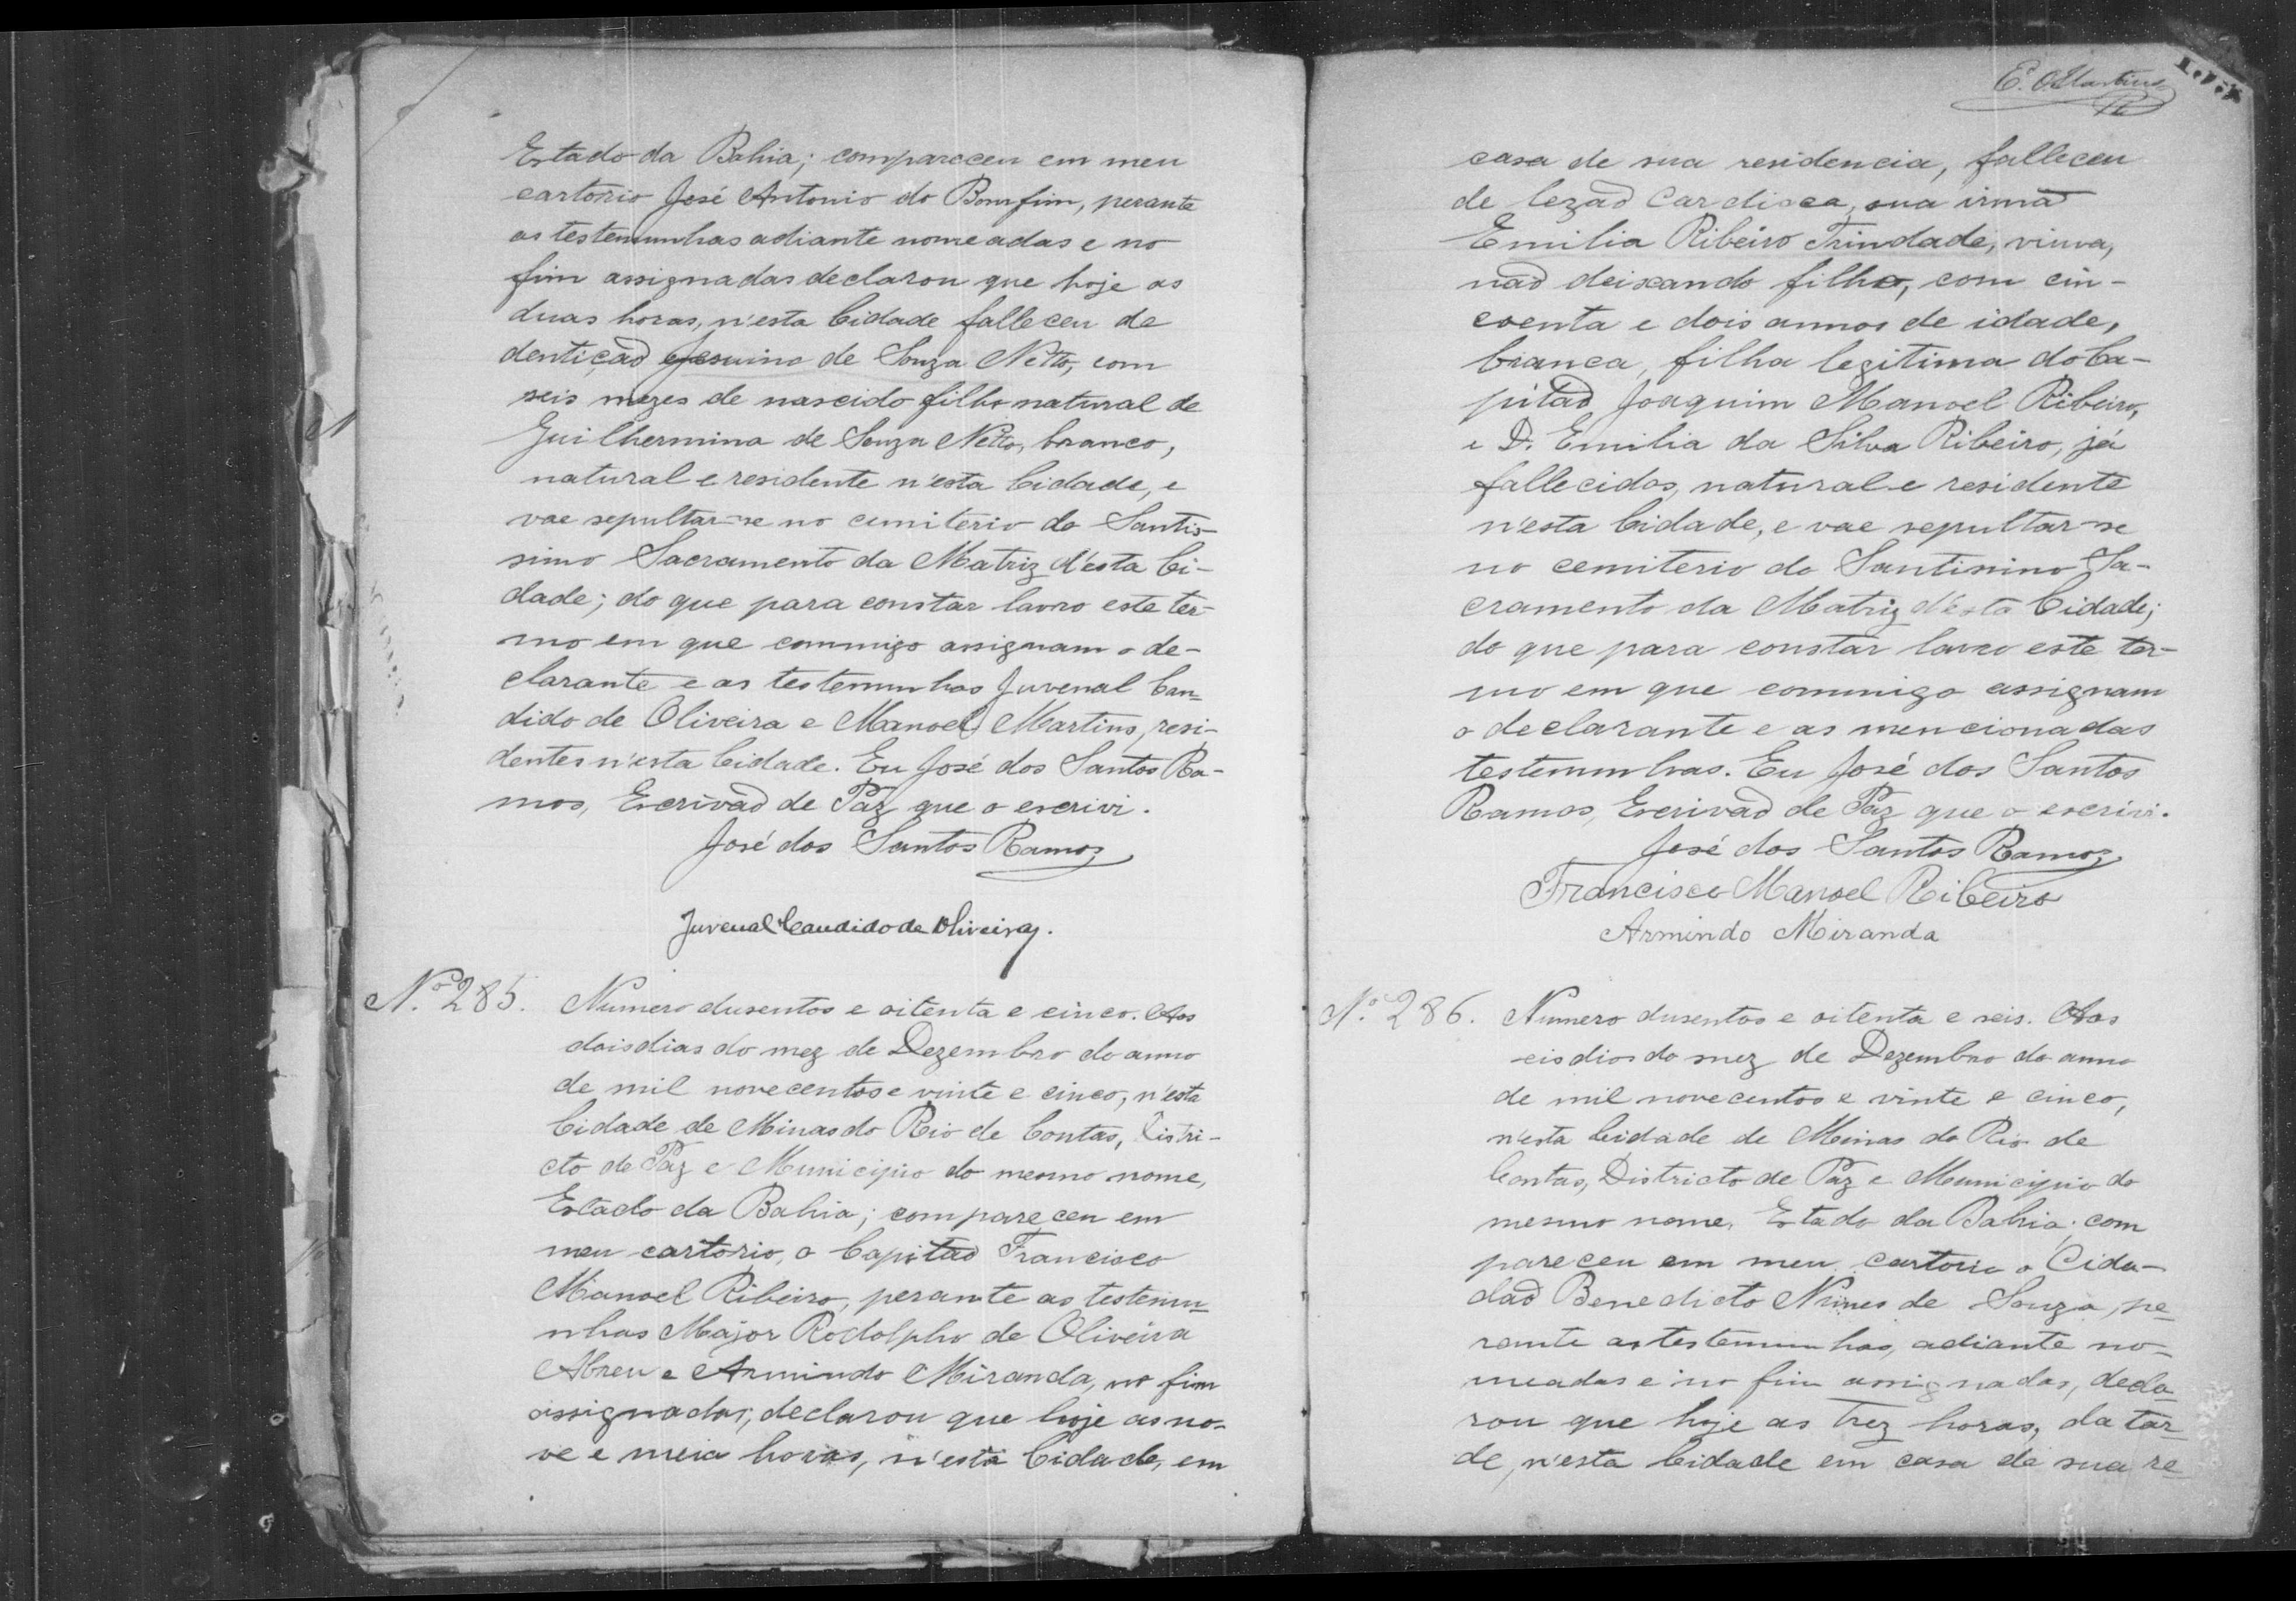 Estado da Bahia; compareceu em meu
cartorio José Antonio do Bomfim, perante
as testemunhas adiante nomeadas e no
fim assignadas declarou que hoje as
duas horas, n'esta Cidade falleceu de
dentição Jesuino de Souza Netto, com
seis mezes de nascido filho natural de
Guilhermina de Souza Netto, branco,
natural e residente n'esta Cidade, e
vae sepultar-se no cemiterio do Santis-
simo Sacramento da Matriz d'esta Ci-
dade; do que para constar lavro este ter-
mo em que commigo assignam o de-
clarante e as testemunhas Juvenal Can-
dido de Oliveira e Manoel Martins, resi-
dentes n'esta Cidade. Eu José dos Santos Ra-
mos, Escrivão de Paz que o escrivi.
José dos Santos Ramos
Juvenal Candido de Oliveira.
Nº 285. Numero dusentos e oitenta e cinco. Aos
dois dias do mez de Dezembro do anno
de mil novecentos e vinte e cinco, n'esta
Cidade de Minas do Rio de Contas, Distri-
cto de Paz e Municipio do mesmo nome,
Estado da Bahia; compareceu em
meu cartorio, o Capitão Francisco
Manoel Ribeiro, perante as testemu-
nhas Major Rodolpho de Oliveira
Abreu e Armindo Miranda, no fim
assignadas; declarou que hoje as no-
ve e meia horas, n'esta Cidade, em
E. Martins
casa de sua residencia, falleceu
de lezão Cardiaca, sua irmã
Emilia Ribeiro Trindade, viuva,
não deixando filho, com cin-
coenta e dois annos de idade,
branca, filha legitima do Ca-
pitão Joaquim Manoel Ribeiro,
e D. Emilia da Silva Ribeiro, já
fallecidos, natural e residente
n'esta Cidade, e vae sepultar-se
no cemiterio do Santissimo Sa-
cramento da Matriz d'esta Cidade;
do que para constar lavro este ter-
mo em que commigo assignam
o declarante e as mencionadas
testemunhas. Eu José dos Santos
Ramos, Escrivão de Paz que o escrivi.
José dos Santos Ramos
Francisco Manoel Ribeiro
Armindo Miranda
Nº 286. Numero dusentos e oitenta e seis. Aos
eis dias do mez de Dezembro do anno
de mil novecentos e vinte e cinco,
n'esta Cidade de Minas do Rio de
Contas, Districto de Paz e Municipio do
mesmo nome, Estado da Bahia; com
pareceu em meu cartorio o Cida-
dão Benedicto Nunes de Souza, pe-
rante as testemunhas, adiante no-
meadas e no fim assignadas, decla-
rou que hoje as trez horas, da tar-
de, n'esta Cidade em casa de sua re-